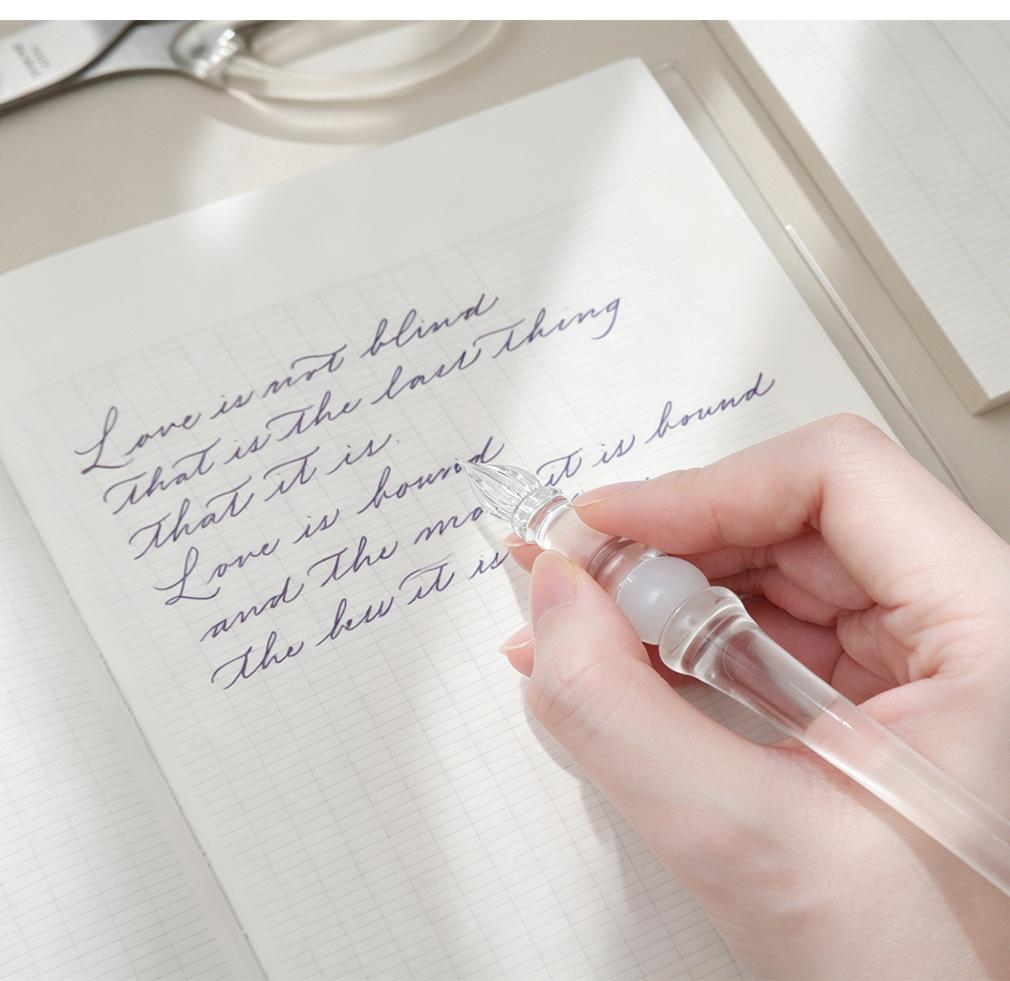 Love is not blind
that is the last thing
that it is.
Love is bound
and the it is bound
the less it is